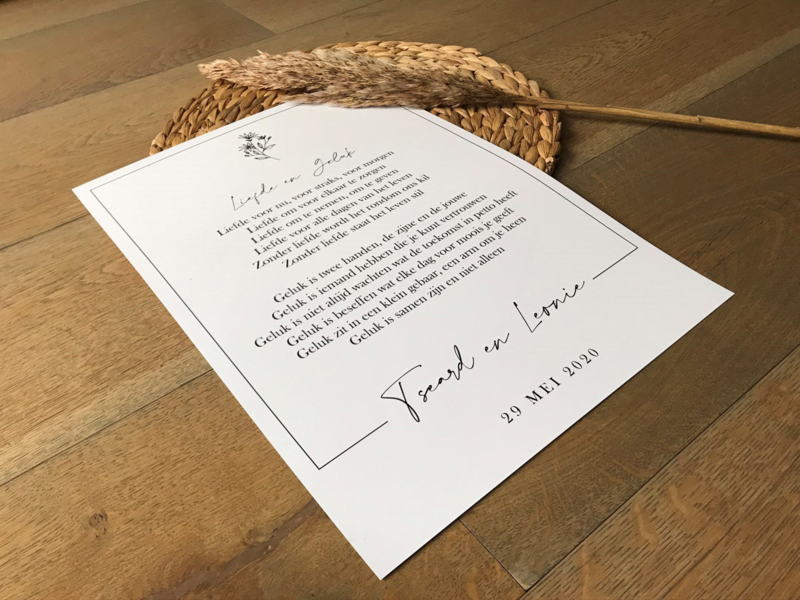 Liefde en Geluk
Liefde voor nu, voor straks, voor morgen
Liefde om voor elkaar te zorgen
Liefde om te nemen, om te geven
Liefde voor alle dagen van het leven
Zonder liefde wordt het rondom ons kil
Zonder liefde staat het leven stil
Geluk is twee handen, de zijne en de jouwe
Geluk is iemand hebben die je kunt vertrouwen
Geluk is niet altijd wachten wat de toekomst in petto heeft
Geluk is beseffen wat elke dag voor moois je geeft
Geluk zit in een klein gebaar, een arm om je heen
Geluk is samen zijn en niet alleen
Tseard en Leonie
29 MEI 2020